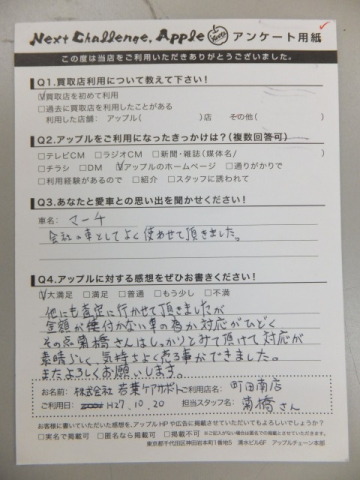 Next Challenge. Apple アンケート用紙
この度は当店をご利用いただきありがとうございました。
Q1.買取店利用について教えて下さい!
☑買取店を初めて利用
□過去に買取店を利用したことがある
利用した店舗: アップル( )店 その他( )
Q2.アップルをご利用になったきっかけは?(複数回答可)
□テレビCM □ラジオCM □新聞・雑誌(媒体名/ )
□チラシ □DM ☑アップルのホームページ □通りがかりで
□利用経験があるので □紹介 □スタッフに誘われて
Q3.あなたと愛車との思い出を聞かせください!
車名: マーチ
会社の車としてよく使わせて頂きました。
Q4.アップルに対する感想をぜひお書きください!
☑大満足 □満足 □普通 □もう少し □不満
他にも査定に行かせて頂きましたが
金額が値付かない車の為か対応がひどく
その点菊橋さんはしっかりとみて頂けて対応が
素晴らしく、気持ちよく売る事ができました。
またよろしくお願いします。
お名前: 株式会社 若葉ケアサポート ご利用店名: 町田南店
ご利用日: H27.10.20 担当スタッフ名: 菊橋さん
お客様に書いていただいた感想を、アップルHPや広告に掲載させていただいてもよろしいでしょうか?
□実名で掲載可 □匿名なら掲載可 □掲載不可 ※ご記入がない場合は匿名での掲載とさせていただきます。
東京都千代田区神田岩本町1番地5 清水ビル6F アップルチェーン本部